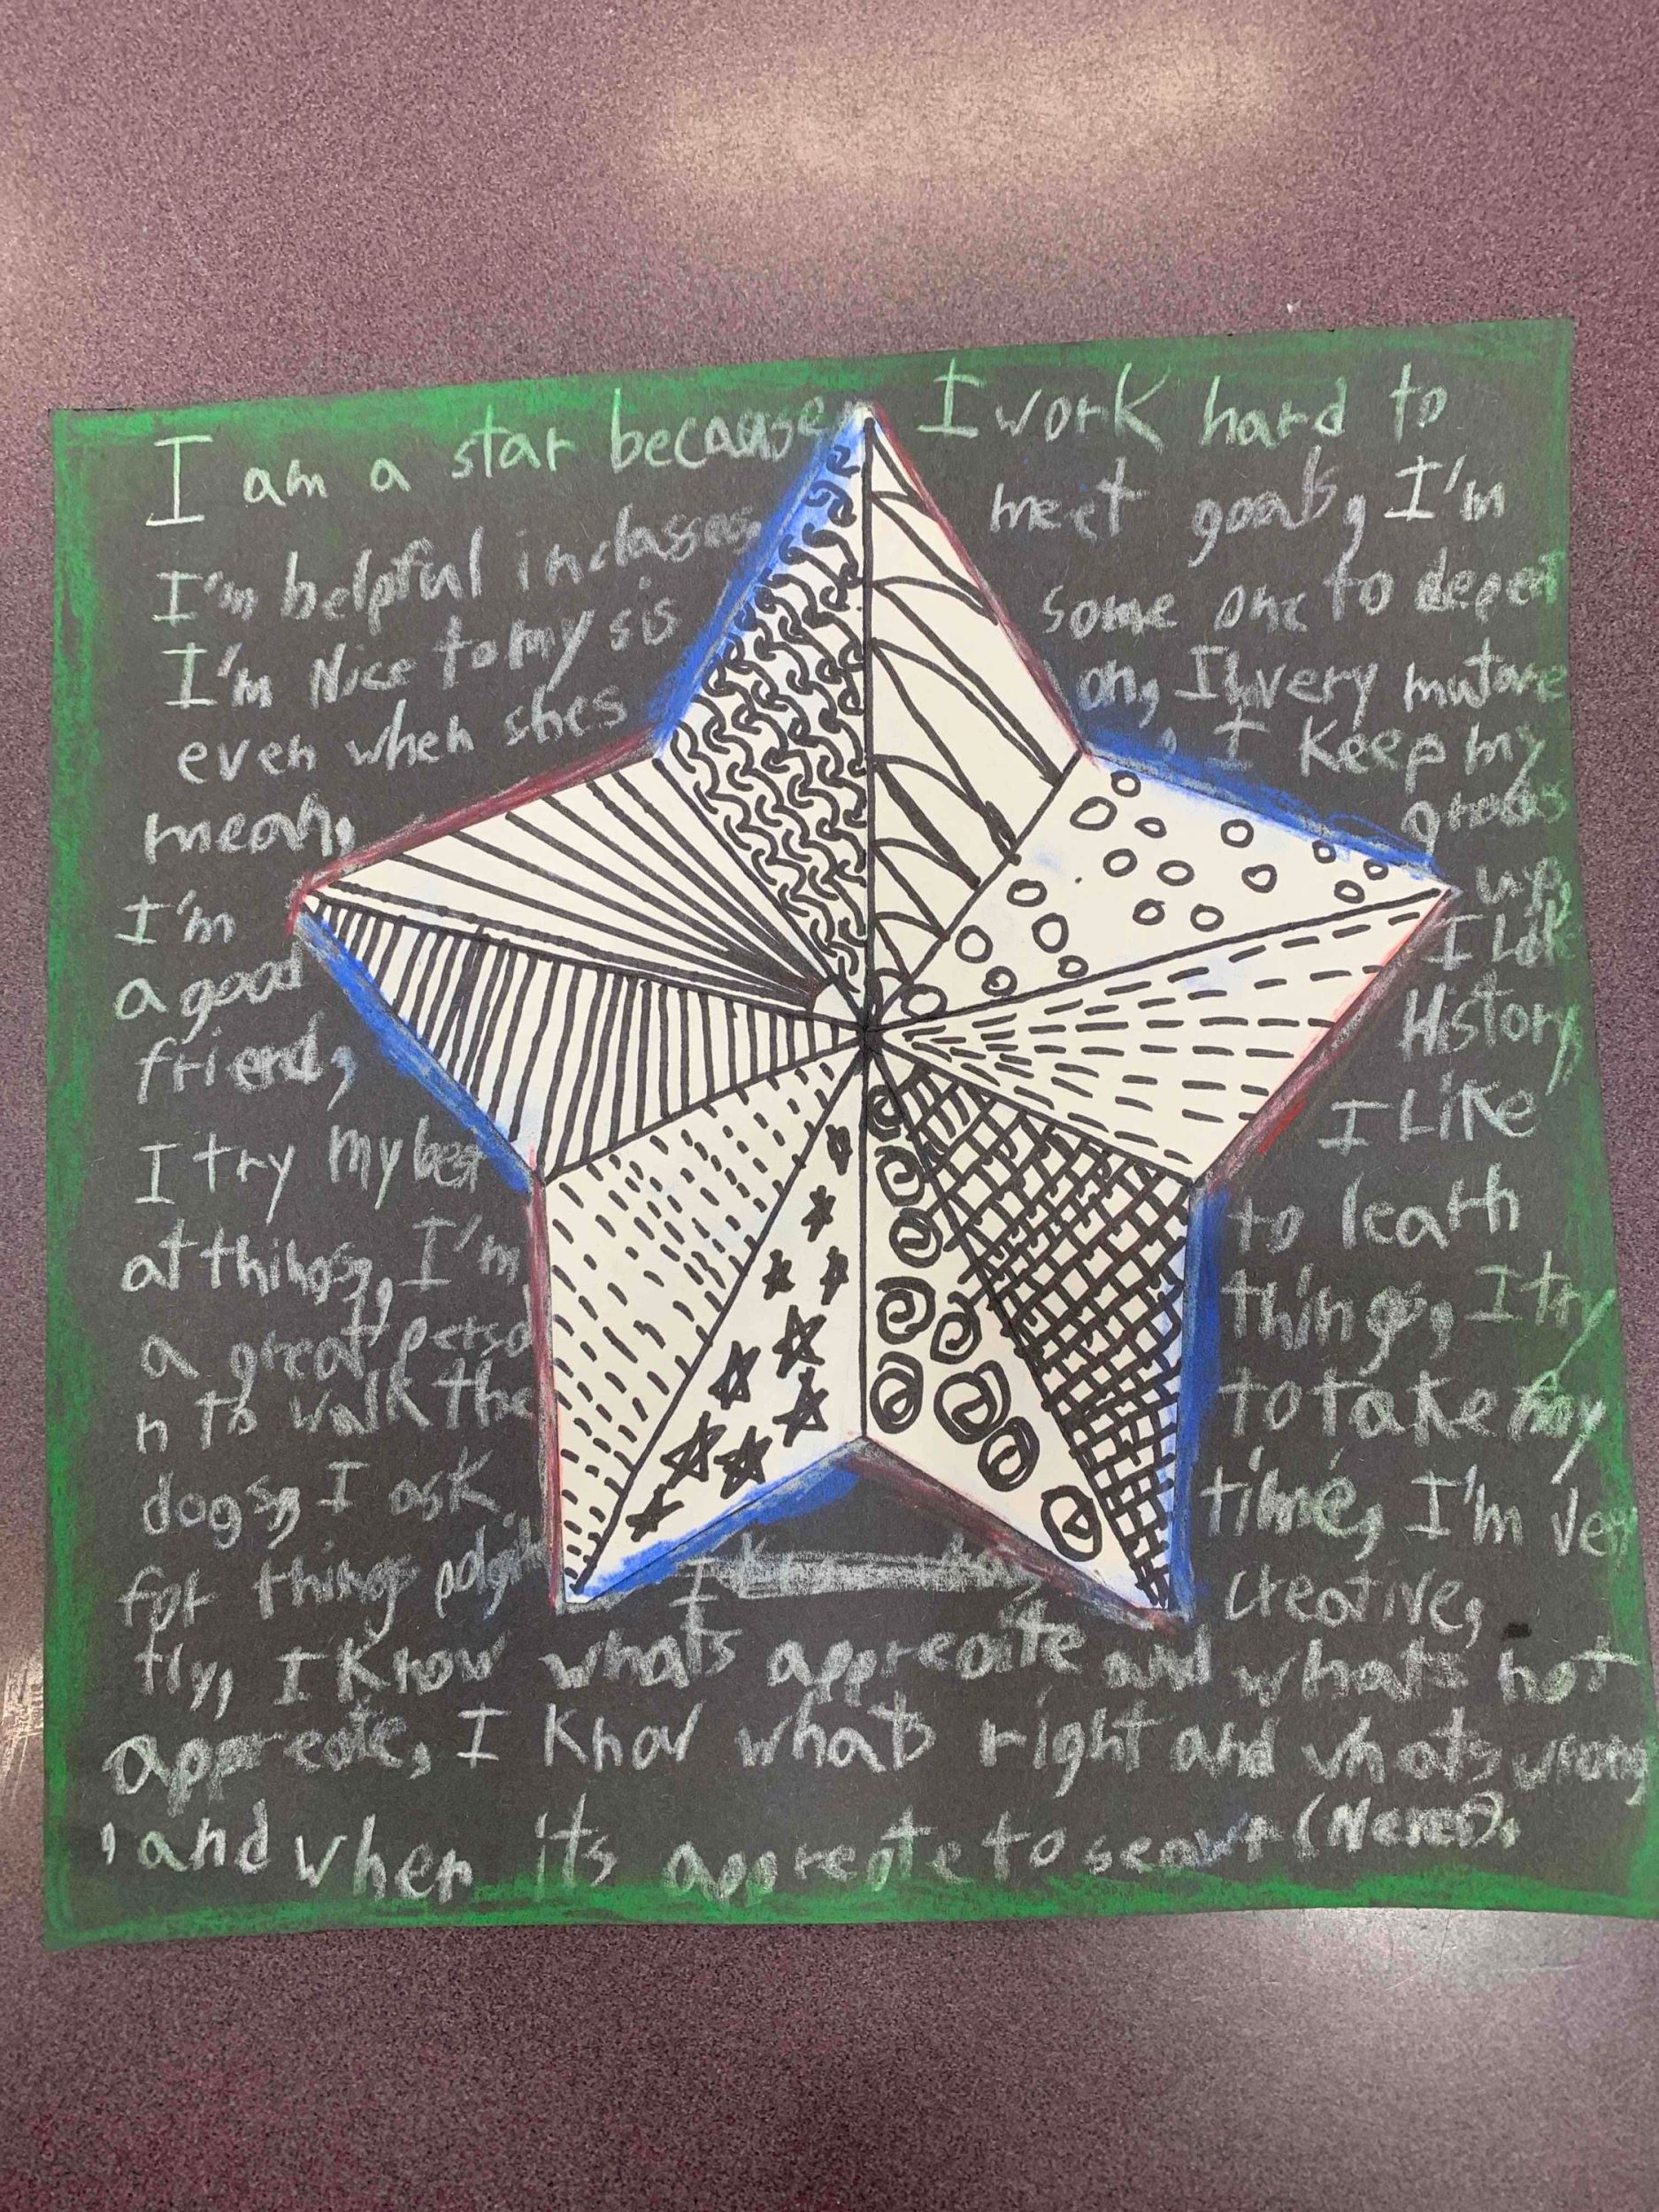 I am a star because
I'm helpful in classes,
I'm Nice to my sis
even when shes
mean,
I'm
a good
friend,
I try my best
at things, I'm
a great perso
n to walk the
dogs, I ask
for things polgit
tly, I Know whats appreaite and whats not
appreate, I Know whats right and whats wrong
, and when its appreate to (Never).
I work hard to
meet goals, I'm
some one to depent
on, I'm very muture
, I Keep my
grades
up,
I Like
History,
I Like
to learn
things, I try
to take my
time, I'm very
creative,